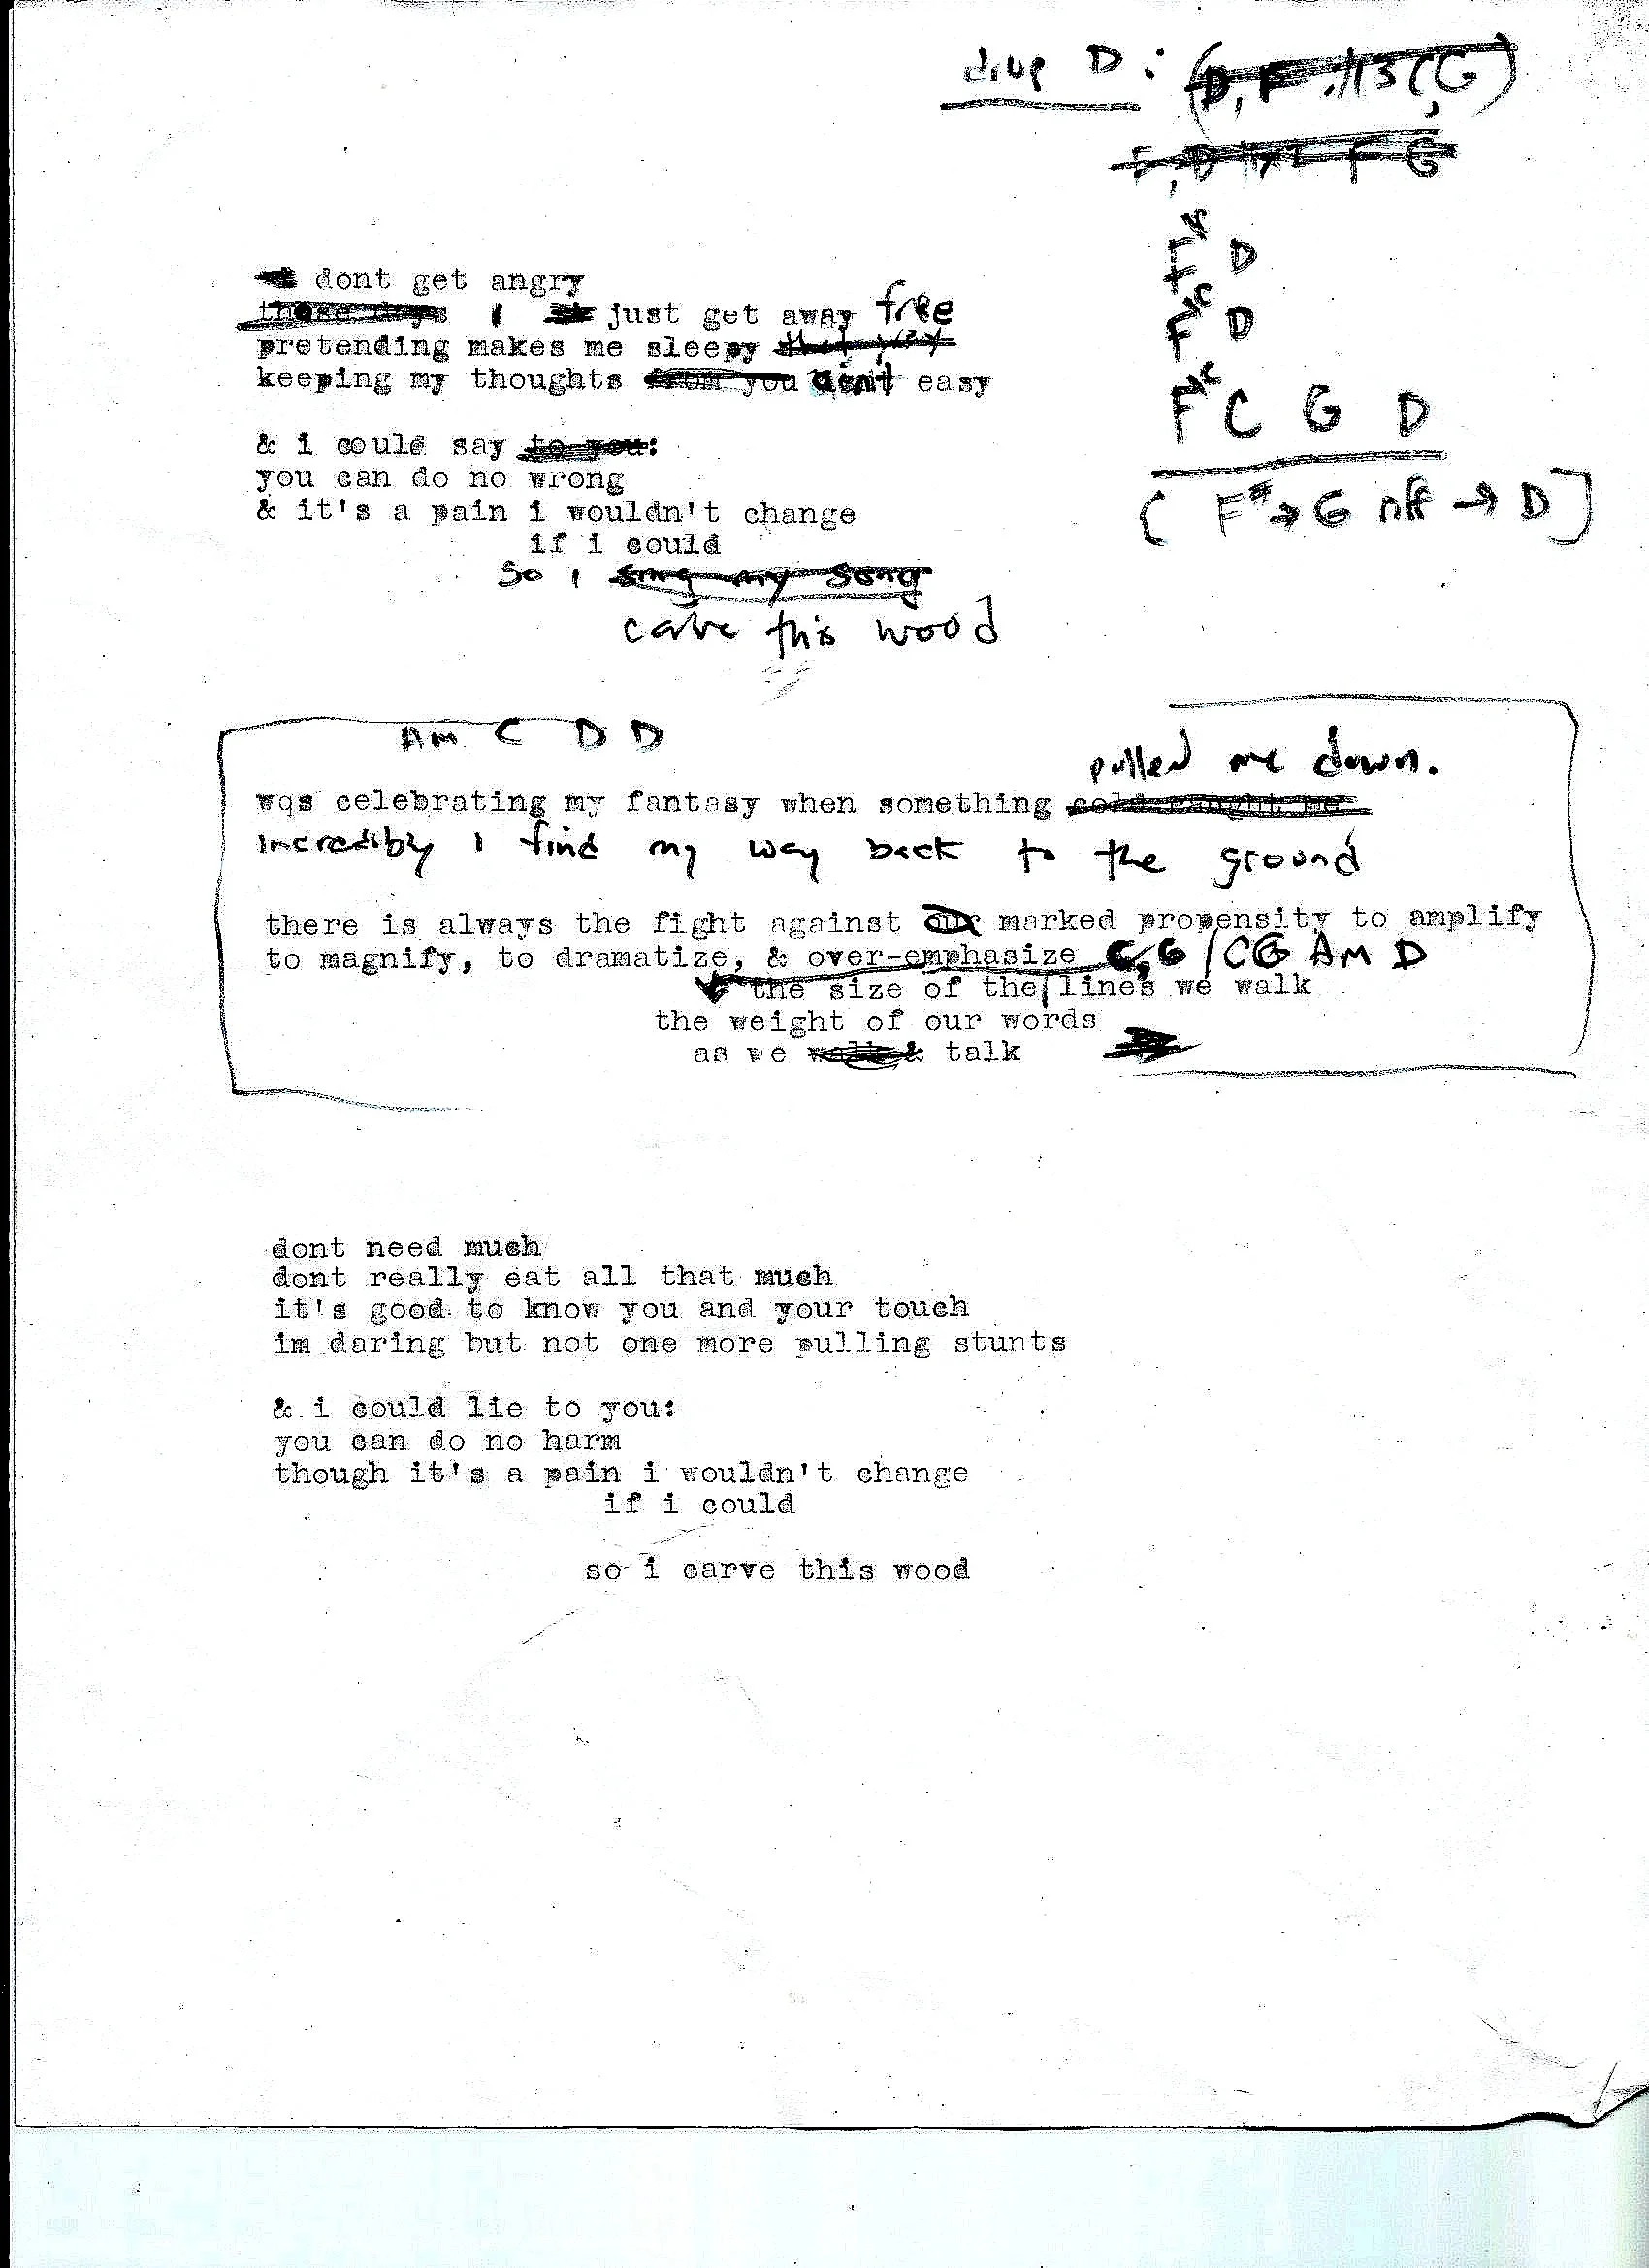 drop D:
F# D
F# D
F# C G D
[ F# → G riff → D ]
dont get angry
I just get away free
pretending makes me sleepy
keeping my thoughts aint easy
& i could say
you can do no wrong
& it's a pain i wouldn't change
if i could
So I sing my song
carve this wood
Am C D D
pulled me down.
wqs celebrating my fantasy when something
Incredibly I find my way back to the ground
there is always the fight against our marked propensity to amplify
to magnify, to dramatize, & over-emphasize C, G / C G Am D
the size of the lines we walk
the weight of our words
as we talk
dont need much
dont really eat all that much
it's good to know you and your touch
im daring but not one more pulling stunts
& i could lie to you:
you can do no harm
though it's a pain i wouldn't change
if i could
so i carve this wood